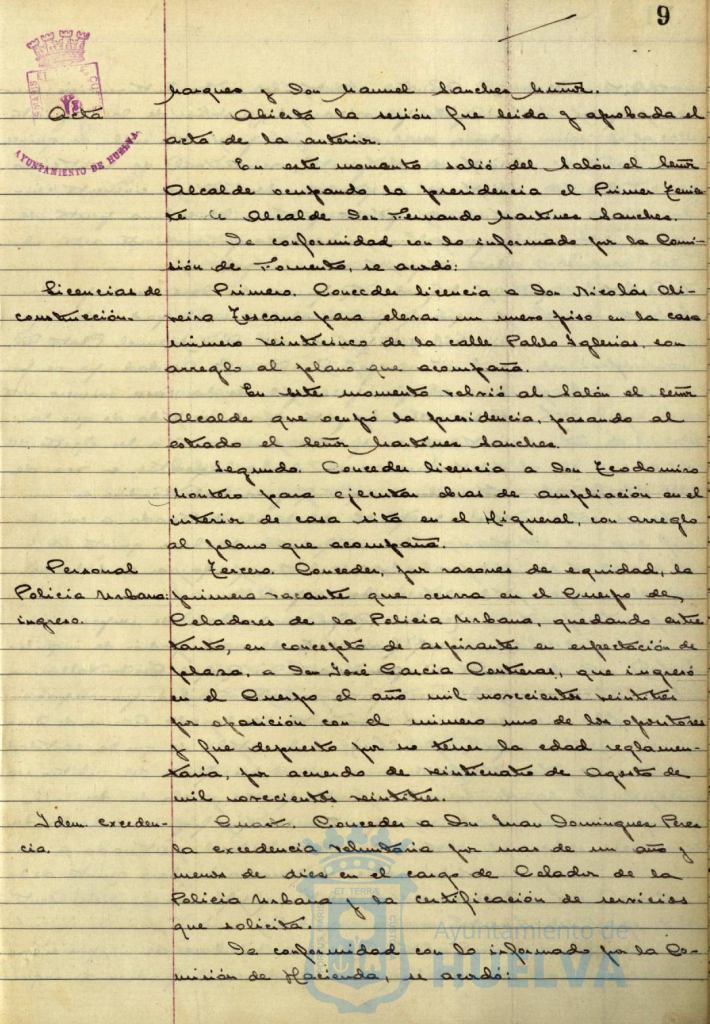 9
Marques y Don Manuel Sanchez Muñoz.
Acta
Abierta la sesión fue leida y aprobada el
acta de la anterior.
AYUNTAMIENTO DE HUELVA
En este momento salió del Salón el Señor
Alcalde ocupando la presidencia el Primer Tenien-
te de Alcalde Don Fernando Martinez Sanchez.
De conformidad con lo informado por la Comi-
sión de Fomento, se acordó:
Licencias de
construcción.
Primero. Conceder licencia a Don Nicolás Oli-
veira Toscano para elevar un nuevo piso en la casa
número veinticinco de la calle Pablo Iglesias, con
arreglo al plano que acompaña.
En este momento volvió al Salón el Señor
Alcalde que ocupó la presidencia, pasando al
estrado el Señor Martinez Sanchez.
Segundo. Conceder licencia a Don Teodomiro
Montero para ejecutar obras de ampliación en el
interior de casa sita en el Higueral, con arreglo
al plano que acompaña.
Personal
Policia Urbana:
ingreso.
Tercero. Conceder, por razones de equidad, la
primera vacante que ocurra en el Cuerpo de
Celadores de la Policia Urbana, quedando entre
tanto, en concepto de aspirante en espectación de
plaza, a Don José Garcia Contreras, que ingresó
en el Cuerpo el año mil novecientos veintitres
por oposición con el número uno de los opositores
y fue depuesto por no tener la edad reglamen-
taria, por acuerdo de veinticuatro de Agosto de
mil novecientos veintitres.
Idem. exceden-
cia.
Cuarto. Conceder a Don Juan Dominguez Perez
la excedencia voluntaria por mas de un año y
menos de diez en el cargo de Celador de la
Policia Urbana y la certificación de servicios
que solicita.
De conformidad con lo informado por la Co-
misión de Hacienda, se acordó:
ET TERRA
Ayuntamiento de
HUELVA